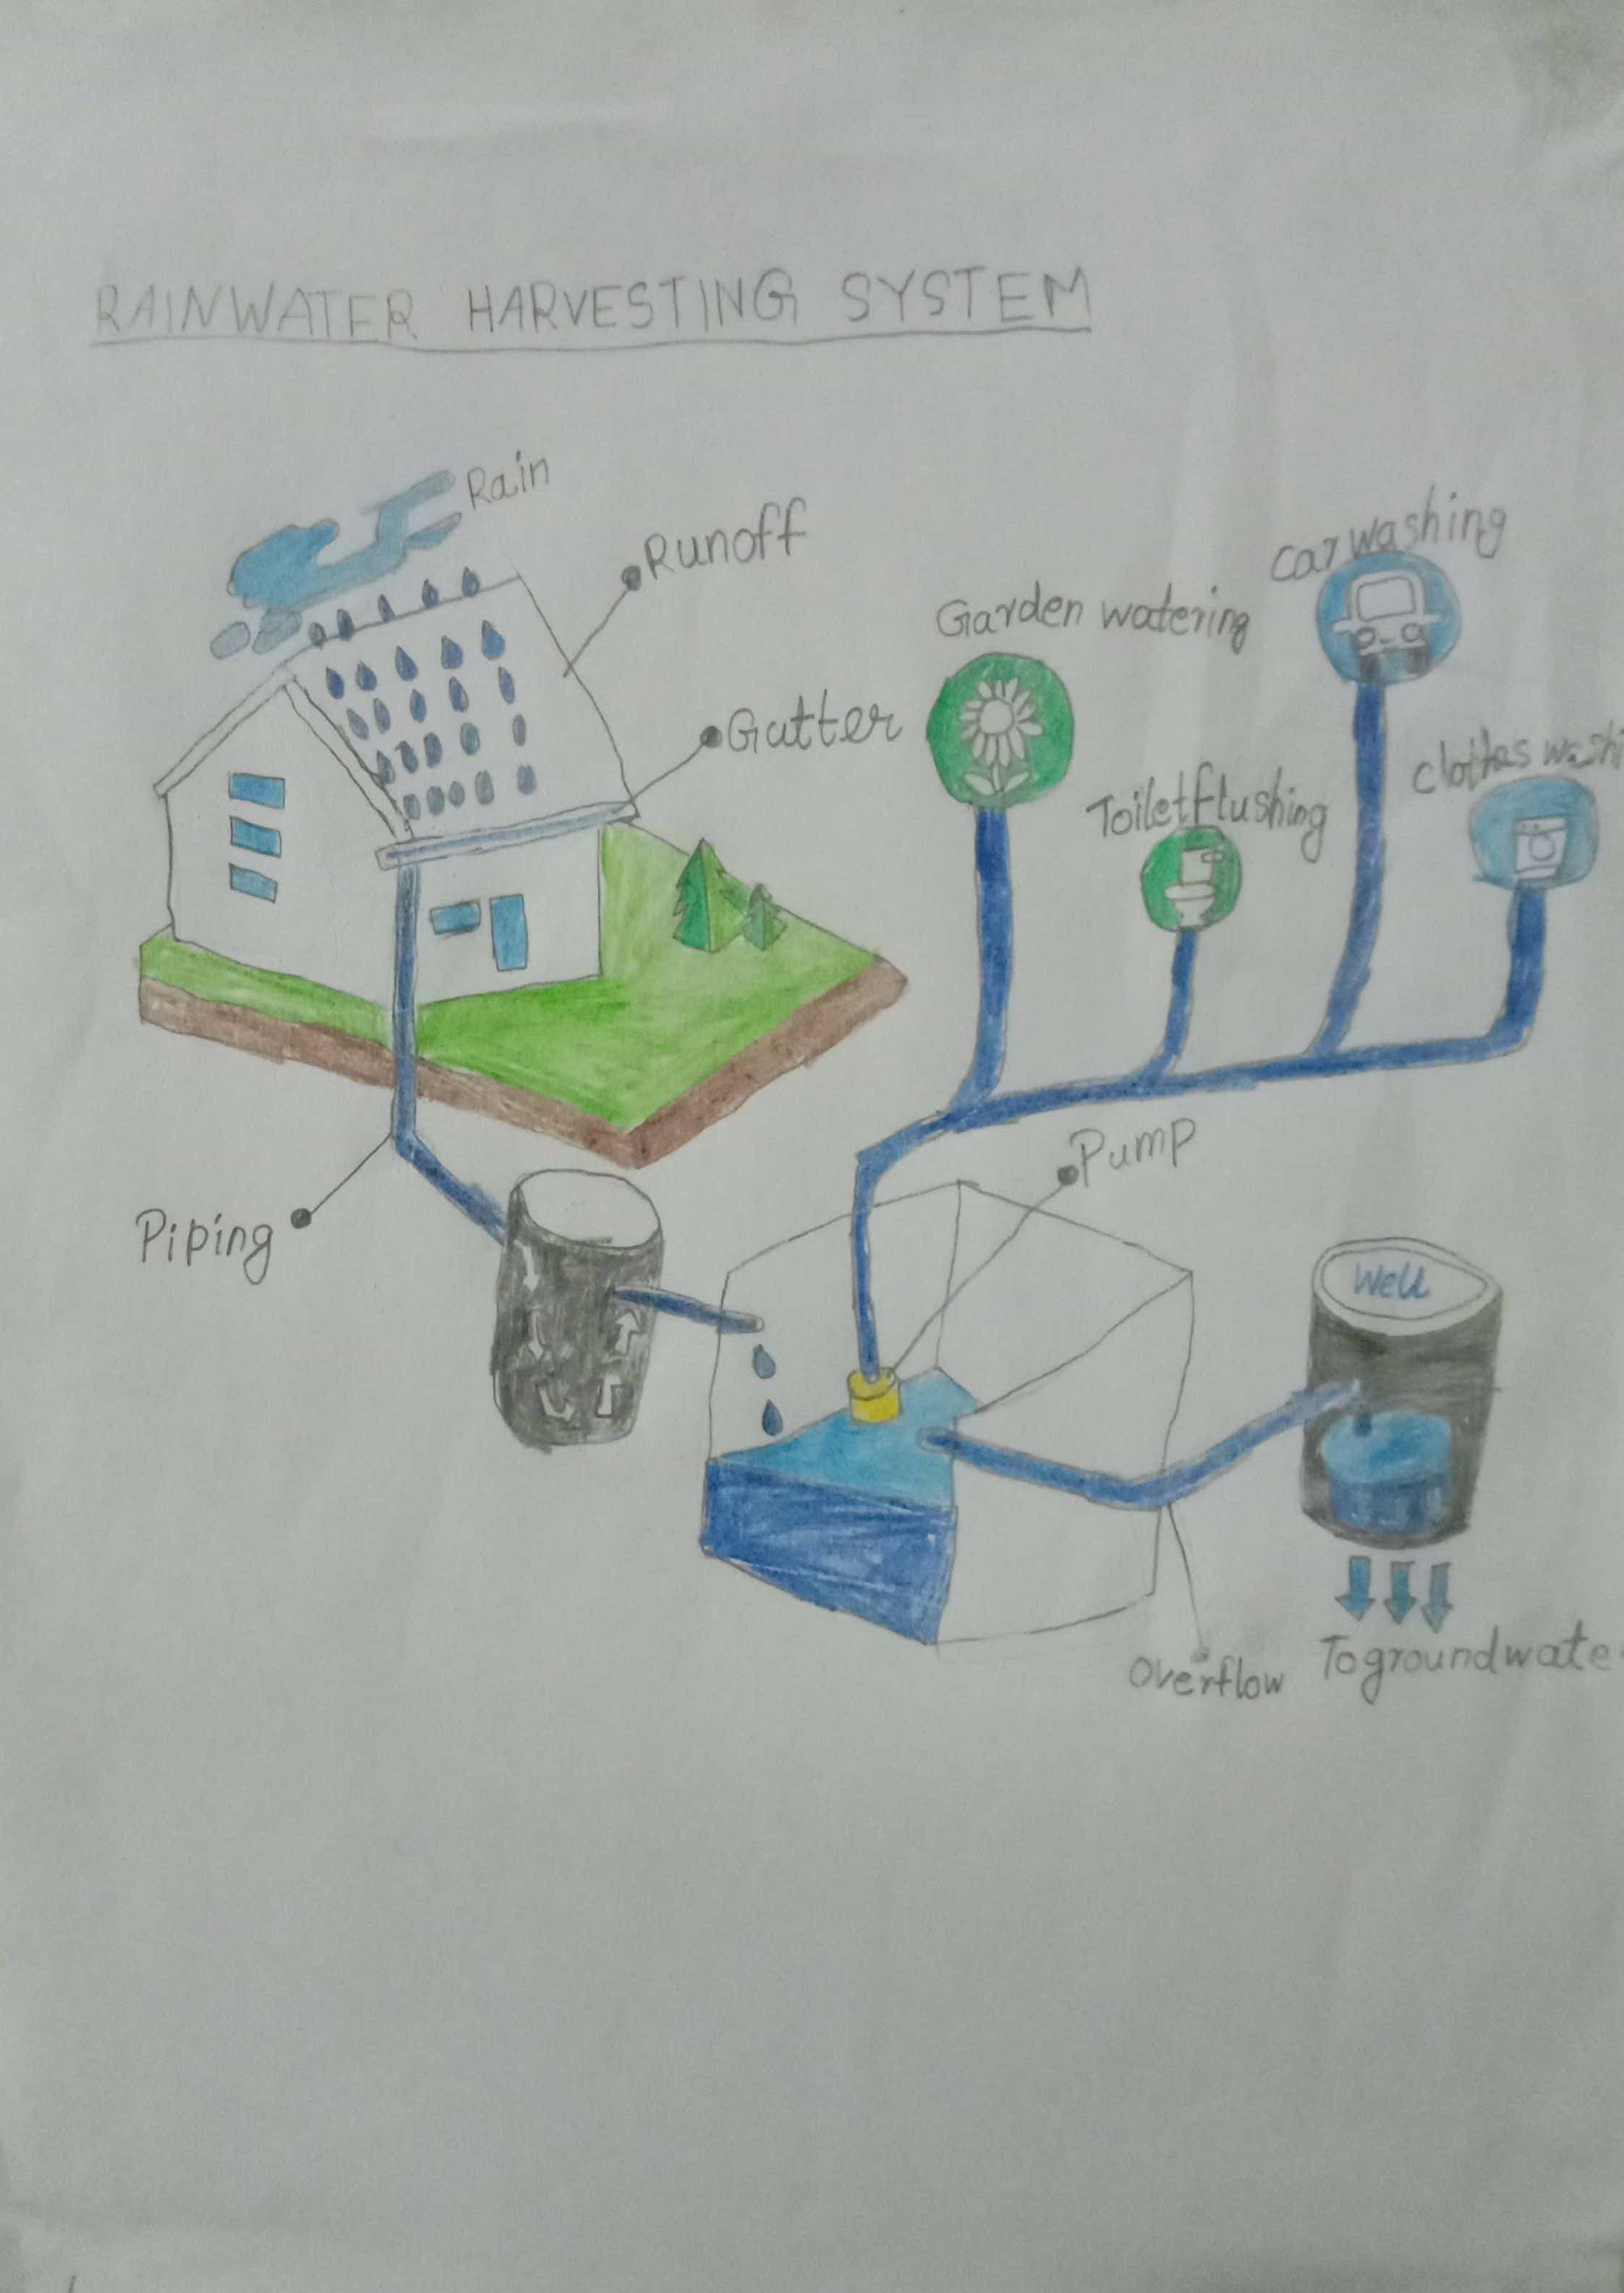 RAINWATER HARVESTING SYSTEM
Rain
Runoff
Gutter
Garden watering
Car washing
Toilet flushing
Clothes washi
Piping
Pump
Well
Overflow
To groundwate